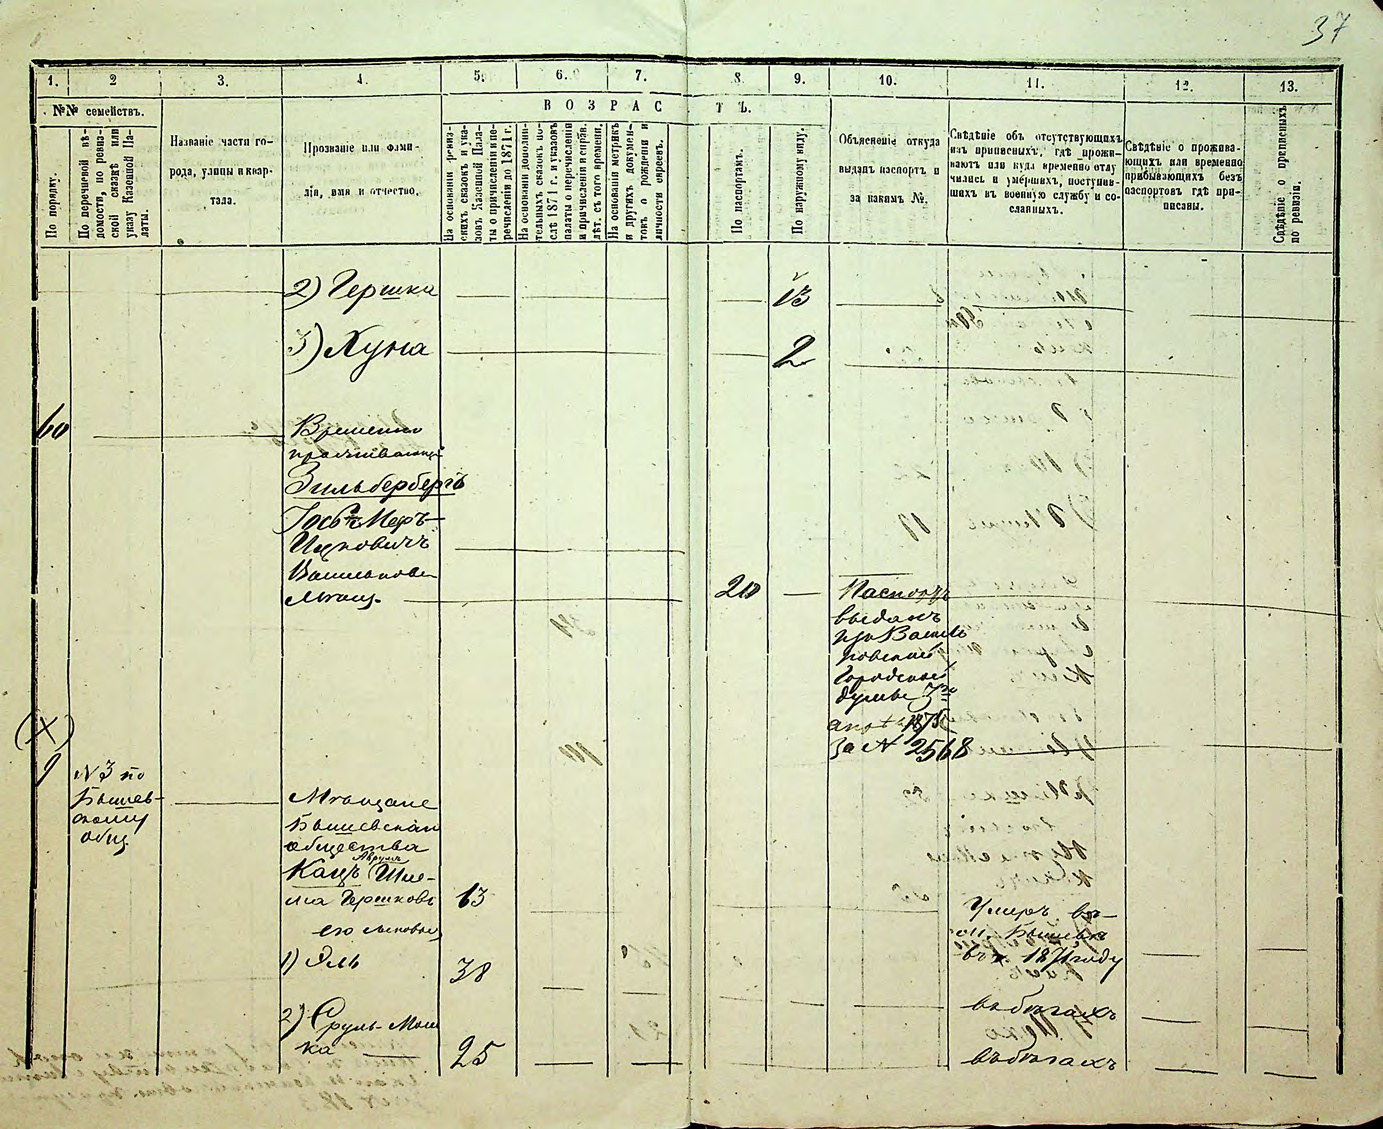 37
1. 2 3. 4. 5. 6. 7. 8. 9. 10. 11. 12. 13.
№№ семействъ.
В О З Р А С Т Ъ.
По порядку.
По перечневой вѣ-
домости, по ревиз-
ской сказкѣ или
указу Казенной Па-
латы.
Названіе части го-
рода, улицы и квар-
тала.
Прозваніе или фами-
лія, имя и отчество.
На основаніи ревиз-
скихъ сказокъ и ука-
зовъ Казенной Пала-
ты о причисленіи и пе-
речисленіи до 1871 г.
На основаніи дополни-
тельныхъ сказокъ по-
слѣ 1871 г. и указовъ
палаты о перечисленіи
и причисленіи и прибв.
лѣт. съ того времени.
На основаніи метрикъ
и другихъ докумен-
товъ о рожденіи и
личности евреевъ.
По паспортамъ.
По наружному виду.
Объясненіе откуда
выданъ паспортъ и
за какимъ №.
Свѣдѣніе объ отсутствующихъ
изъ приписныхъ, гдѣ прожи-
ваютъ или куда временно отлу
чились и умершихъ, поступив-
шихъ въ военную службу и со-
сланныхъ.
Свѣдѣніе о прожива-
ющихъ или временно
прибывающихъ безъ
паспортовъ гдѣ при-
писаны.
Свѣдѣніе о приписныхъ
по ревизіи.
2) Гершка 13
3) Хуна 2
60 Временно
проживающій
Зильбербергъ
Иосъ Меръ-
Ицковичъ
Васильков.
Мѣщ. 20 Паспортъ
выданъ
изъ Василь
ковской
Городской
думы 3го
1875
за № 2568
(X)
9 №3 по
Бышев-
скому
общ.
Мѣщане
Бышевскаго
общества
Аврумъ
Кацъ Шле-
ма Гершковъ 63 Умеръ въ
м. Бышевѣ
въ 1871 году
его сыновья
1) Эль 38 въ бѣгахъ
2) Сруль-Мош
ка 25 въ бѣгахъ